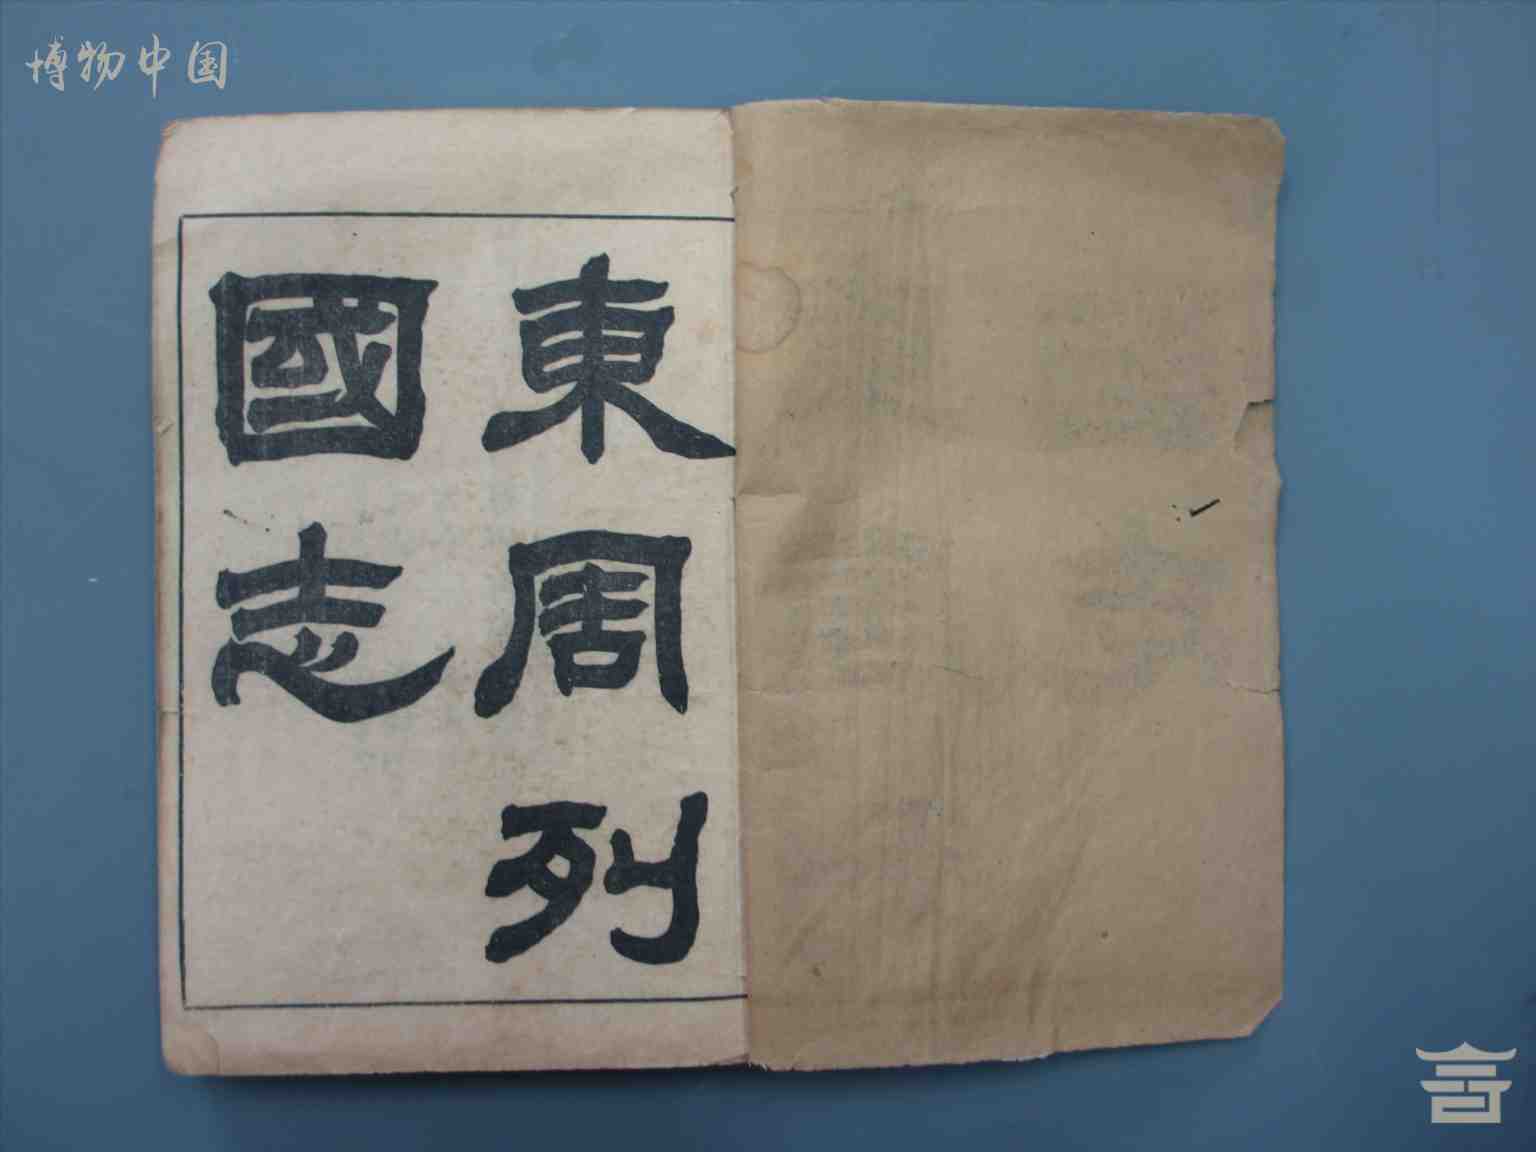 博物中国
東周列
國志